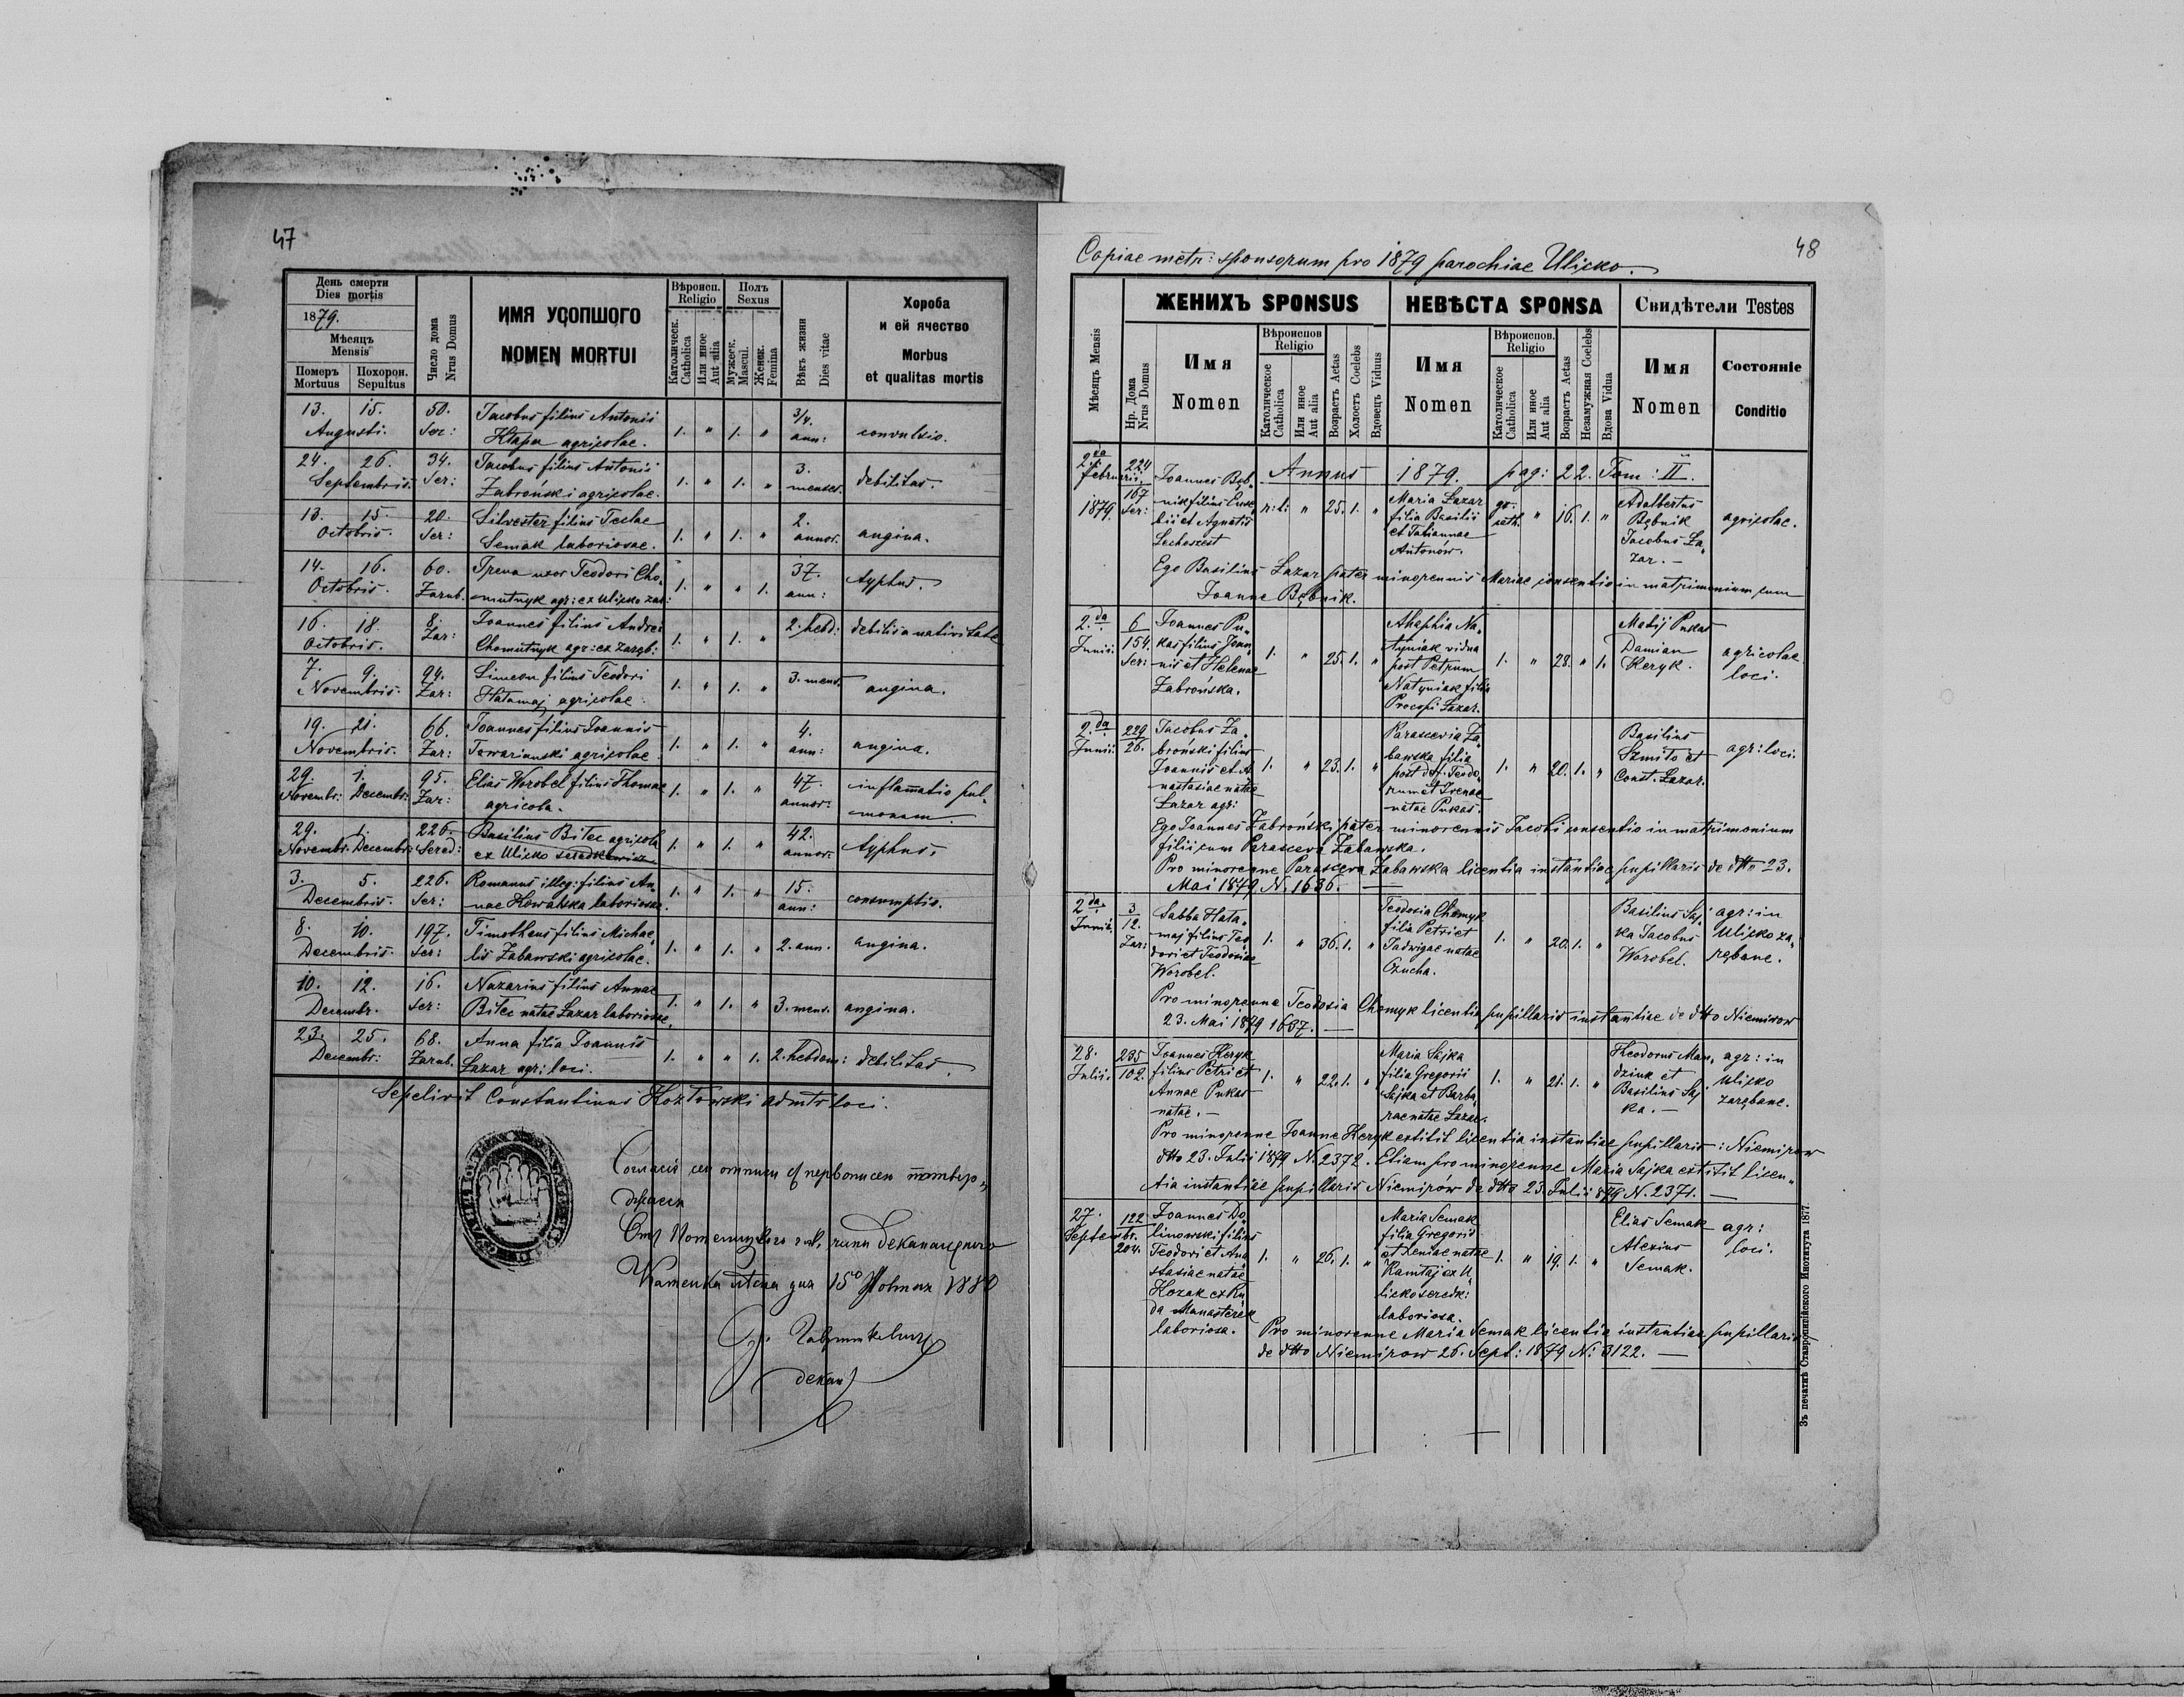 47
День смерти
Dies mortis
1879.
Мѣсяцъ
Mensis
Померъ
Mortuus
Похорон.
Sepultus
Число дома
Nrus Domus
ИМЯ УСОПШОГО
NOMEN MORTUI
Вѣроисп.
Religio
Католическ.
Catholica
Или иное
Aut alia
Полъ
Sexus
Мужеск.
Mascul.
Женск.
Femina
Вѣкъ жизни
Dies vitae
Хороба
и ей ячество
Morbus
et qualitas mortis
13. 15. 50. Jacobus filius Antonii 3/4.
Augusti. Ser: Kłapa agricolae. 1. " 1. " ann: convulsio.
24. 26. 34. Jacobus filius Antonii 3.
Septembris. Ser: Zabroński agricolae. 1. " 1. " menses. debilitas.
13. 15. 20. Silvester filius Teclae 2.
Octobris. Ser: Semak laboriosae. 1. " 1. " annor. angina.
14. 16. 60. Irena uxor Teodori Cho„ 37.
Octobris. Zarub. mutnyk agr: ex Ulicko zar: 1. " " 1. ann: typhus.
16. 18. 8. Joannes filius Andrei
Octobris. Zar: Chomutnyk agr: ex Zaręb: 1. " 1. " 2. hebd: debilis a nativitate
7. 9. 94. Simeon filius Teodori
Novembris. Zar: Hatamaj agricolae. 1. " 1. " 3. mens. angina.
19. 21. 66. Joannes filius Joannis 4.
Novembris. Zar: Towarianski agricolae. 1. " 1. " ann: angina.
29. 1. 95. Elias Worobel filius Thomae 47. inflamatio pul„
Novembr: Decembr: Zar: agricola. 1. " 1. " annor. monum.
29. 1. 226. Basilius Bitec agricola 42.
Novembr. Decembr: Sered: ex Ulicko seredkewicz 1. " 1. " annor: typhus.
3. 5. 226. Romanus illeg: filius An„ 15.
Decembris. Ser: nae Kowalska laboriosae. 1. " 1. " ann: consumptio.
8. 10. 197. Timotheus filius Michae„
Decembris. Ser: lis Zabawski agricolae. 1. " 1. " 2. ann. angina.
10. 12. 16. Nazarius filius Annae
Decembr. Ser: Bitec natae Lazar laboriosae. 1. " 1. " 3. mens. angina.
23. 25. 68. Anna filia Joannis
Decembr: Zarub. Lazar agr: loci. 1. " " 1. 2. hebdom: debilitas.
Sepelivit Constantinus Kozłowski admtr loci.
декан
48
Copiae metr: sponsorum pro 1879 parochiae Ulicko.
Мѣсяцъ Mensis
ЖЕНИХЪ SPONSUS
НЕВѢСТА SPONSA
Свидѣтели Testes
Нр. Дома
Nrus Domus
Имя
Nomen
Вѣроиспов
Religio
Католическое
Catholica
Или иное
Aut alia
Возрастъ Aetas
Холостъ Coelebs
Вдовецъ Viduus
Имя
Nomen
Вѣроиспов.
Religio
Католическое
Catholica
Или иное
Aut alia
Возрастъ Aetas
Незамужная Coelebs
Вдова Vidua
Имя
Nomen
Состояніе
Conditio
Annus 1879. pag: 22. Tom: II.
2da Februarii 1879.
224
167 Ser:
Joannes Bęb„
nik filius Euse„
bii et Agnetis
Lechoszest
r: l: " 25. 1. "
Maria Lazar
filia Basilii
et Tatiannae
Antonów.
gr. cath. " 16. 1. "
Adalbertus
Bębnik
Jacobus La„
zar. —
agricolae.
Ego Basilius Lazar pater minorennis Mariae consentio in matrimonium cum
Joanne Bębnik.
2.da Junii.
6
154. Ser:
Joannes Pu„
kas filius Joan„
nis et Helenae
Zabrońska.
1. " 25. 1. "
Ahaphia Na„
tyniak vidua
post Petrum
Natyniak filia
Procopi Lazar.
1. " 28. " 1.
Matij Pukas
Damian
Keryk.
agricolae
loci.
2.da Junii.
229
26.
Jacobus Za„
bronski filius
Joannis et A„
nastasiae natae
Lazar agr:
1. " 23. 1. "
Parascevia Za„
bawska filia
post def. Teodo„
rum et Irenae
natae Pukas.
1. " 20. 1. "
Basilius
Szmiło et
Const. Lazar.
agr: loci.
Ego Joannes Zabroński pater minorennis Jacobi consentio in matrimonium
filii cum Parasceva Zabawska.
Pro minorenne Parasceva Zabawska licentia instantiae pupillaris de dtto 23.
Mai 1879 N. 1636. —
2da Junii.
3
12. Zar:
Sabba Hata„
maj filius Teo„
dori et Teodosiae
Worobel.
1. " 36. 1. "
Teodosia Chomyk
filia Petri et
Jadwigae natae
Czucha.
1. " 20. 1. "
Basilius Saj„
ka Jacobus
Worobel.
agr: in
Ulicko za„
rębane.
Pro minorenne Teodosia Chomyk licentia pupillaris instantiae de dtto Niemirow
23. Mai 1879 1637. —
28. Julii.
235
102.
Joannes Keryk
filius Petri et
Annae Pukas
natae. —
1. " 22. 1. "
Maria Sajka
filia Gregorii
Sajka et Barba„
rae natae Lazar.
1. " 21. 1. "
Theodorus Man„
dziuk et
Basilius Saj
ka. —
agr: in
Ulicko
zarębane.
Pro minorenne Joanne Keryk extitit licentia instantiae pupillaris: Niemirow
dtto 23. Julii 1879 N. 2372. Etiam pro minorenne Maria Sajka extitit licen„
tia instantiae pupillaris Niemirów de dtto 23. Julii 879 N. 2371. —
27. Septembr.
122
204.
Joannes Do„
linowski filius
Teodori et Ana
stasiae natae
Kozak ex Ru
da Monasterek
laboriosa.
1. " 26. 1. "
Maria Semak
filia Gregorii
et Xeniae natae
Kamtaj ex U„
licko seredk:
laboriosa.
1. " 19. 1. "
Elias Semak
Alexius
Semak.
agr:
loci.
Pro minorenne Maria Semak licentia instantiae pupillaris
de dtto Niemirow 26. Sept: 1879 N: 3122. —
Зъ печатнѣ Ставропигійского Института 1877.